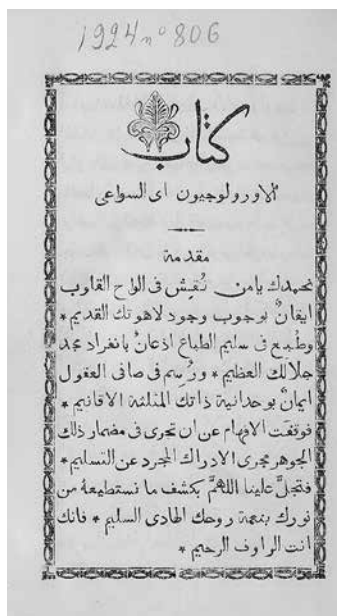 1924 nº 806
كتاب
الاورولوجيون اى السواعى
مقدمة
نحمدك يامن نُقِش فى الواح القلوب
ايقانٌ بوجوب وجود لاهوتك القديم *
وطُبع فى سليم الطباع اذعانٌ بانفراد مجد
جلالك العظيم * ورُسم فى صافى العقول
ايمانٌ بوحدانية ذاتك المثلثة الاقانيم *
فوقفت الافهام عن ان تجرى فى مضمار ذلك
الجوهر مجرى الادراك المجرد عن التسليم *
فتجلَّ علينا اللهمَّ بكشف ما نستطيعهُ من
نورك بنعمة روحك الهادى السليم * فانك
انت الراوف الرحيم *